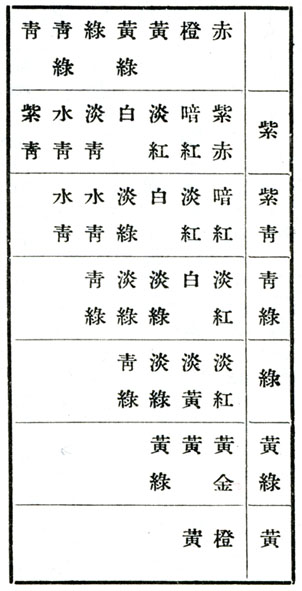 紫 紫靑 靑綠 綠 黃綠 黃
赤 紫赤 暗紅 淡紅 淡紅 黃金 橙
橙 暗紅 淡紅 白 淡黃 黃 黃
黃 淡紅 白 淡綠 淡綠 黃綠
黃綠 白 淡綠 淡綠 靑綠
綠 淡靑 水靑 靑綠
靑綠 水靑 水靑
靑 紫靑